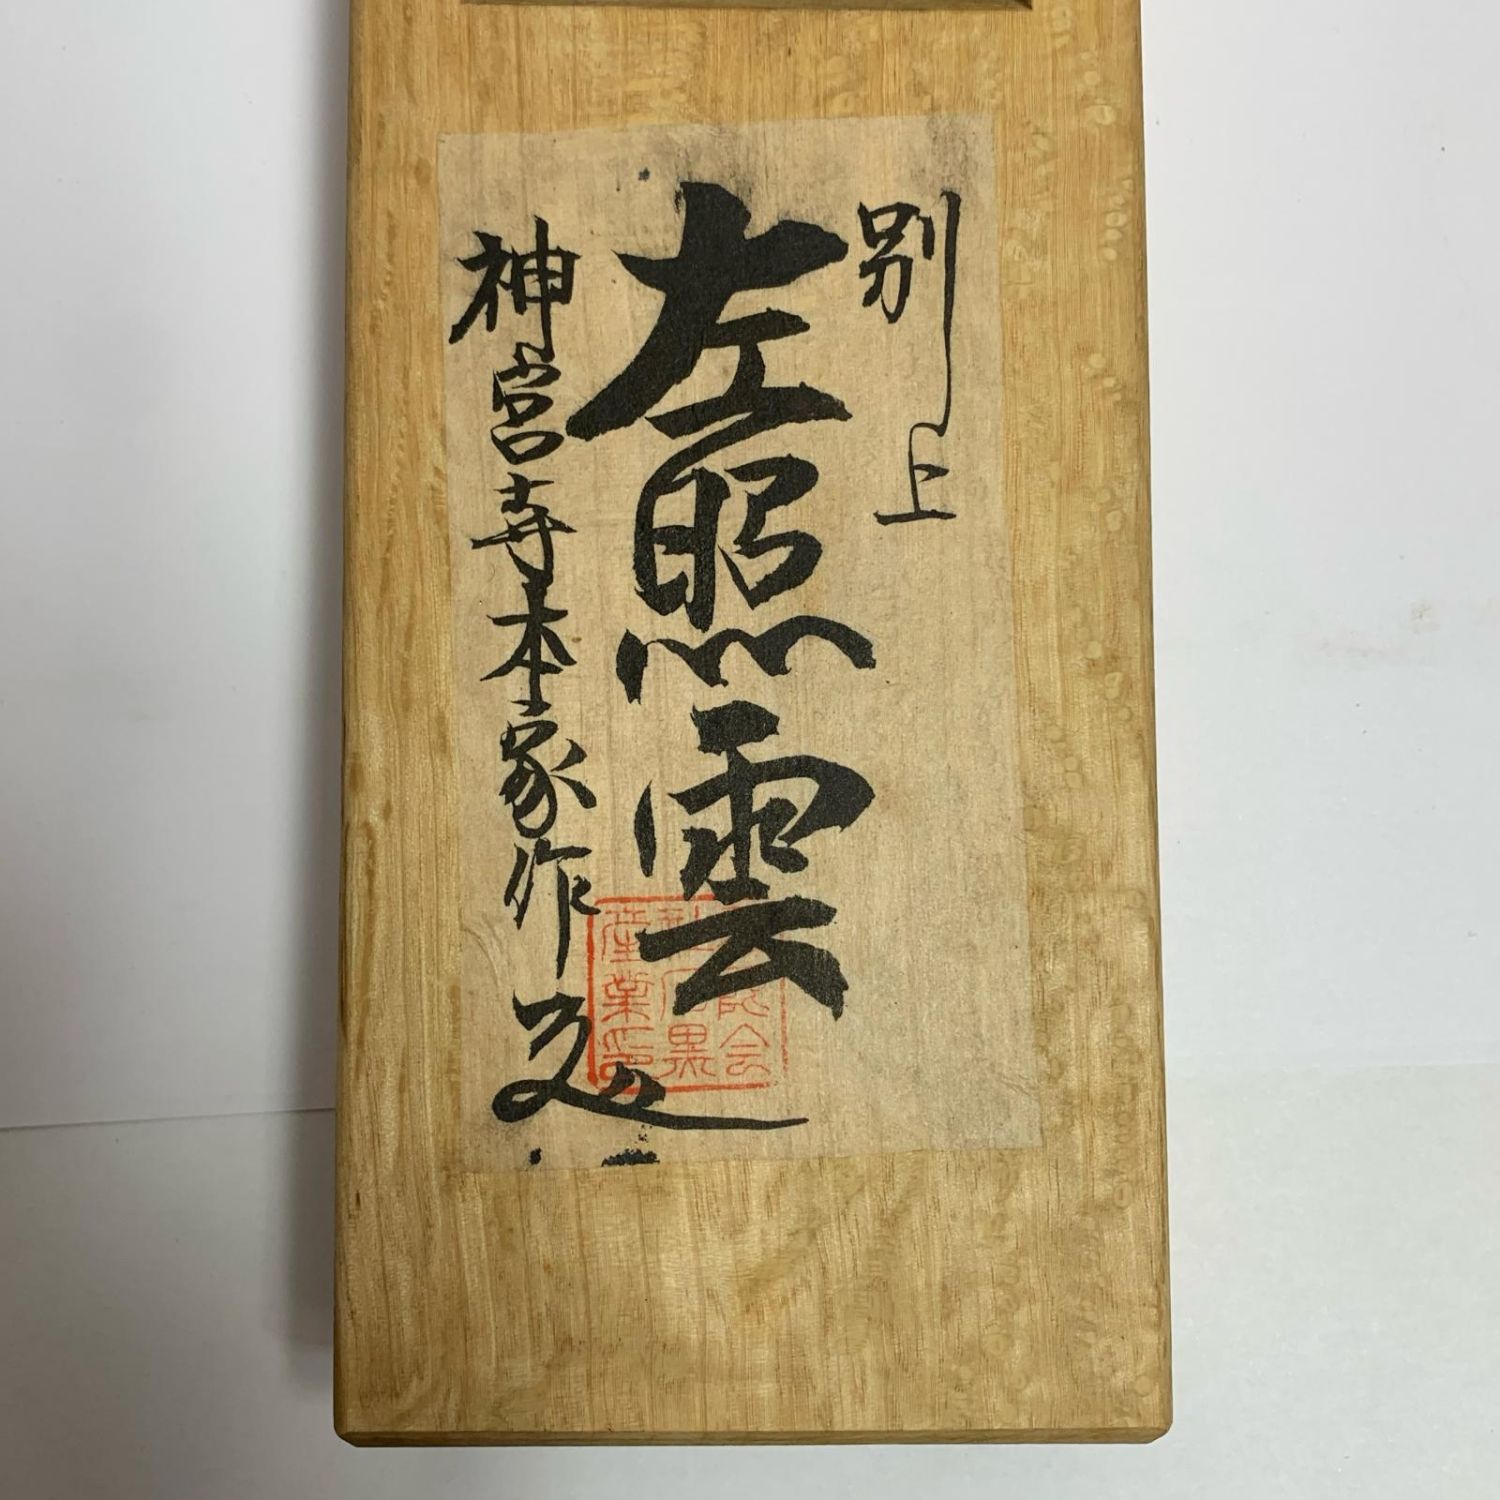 別上
左照雲
神宮寺本家作